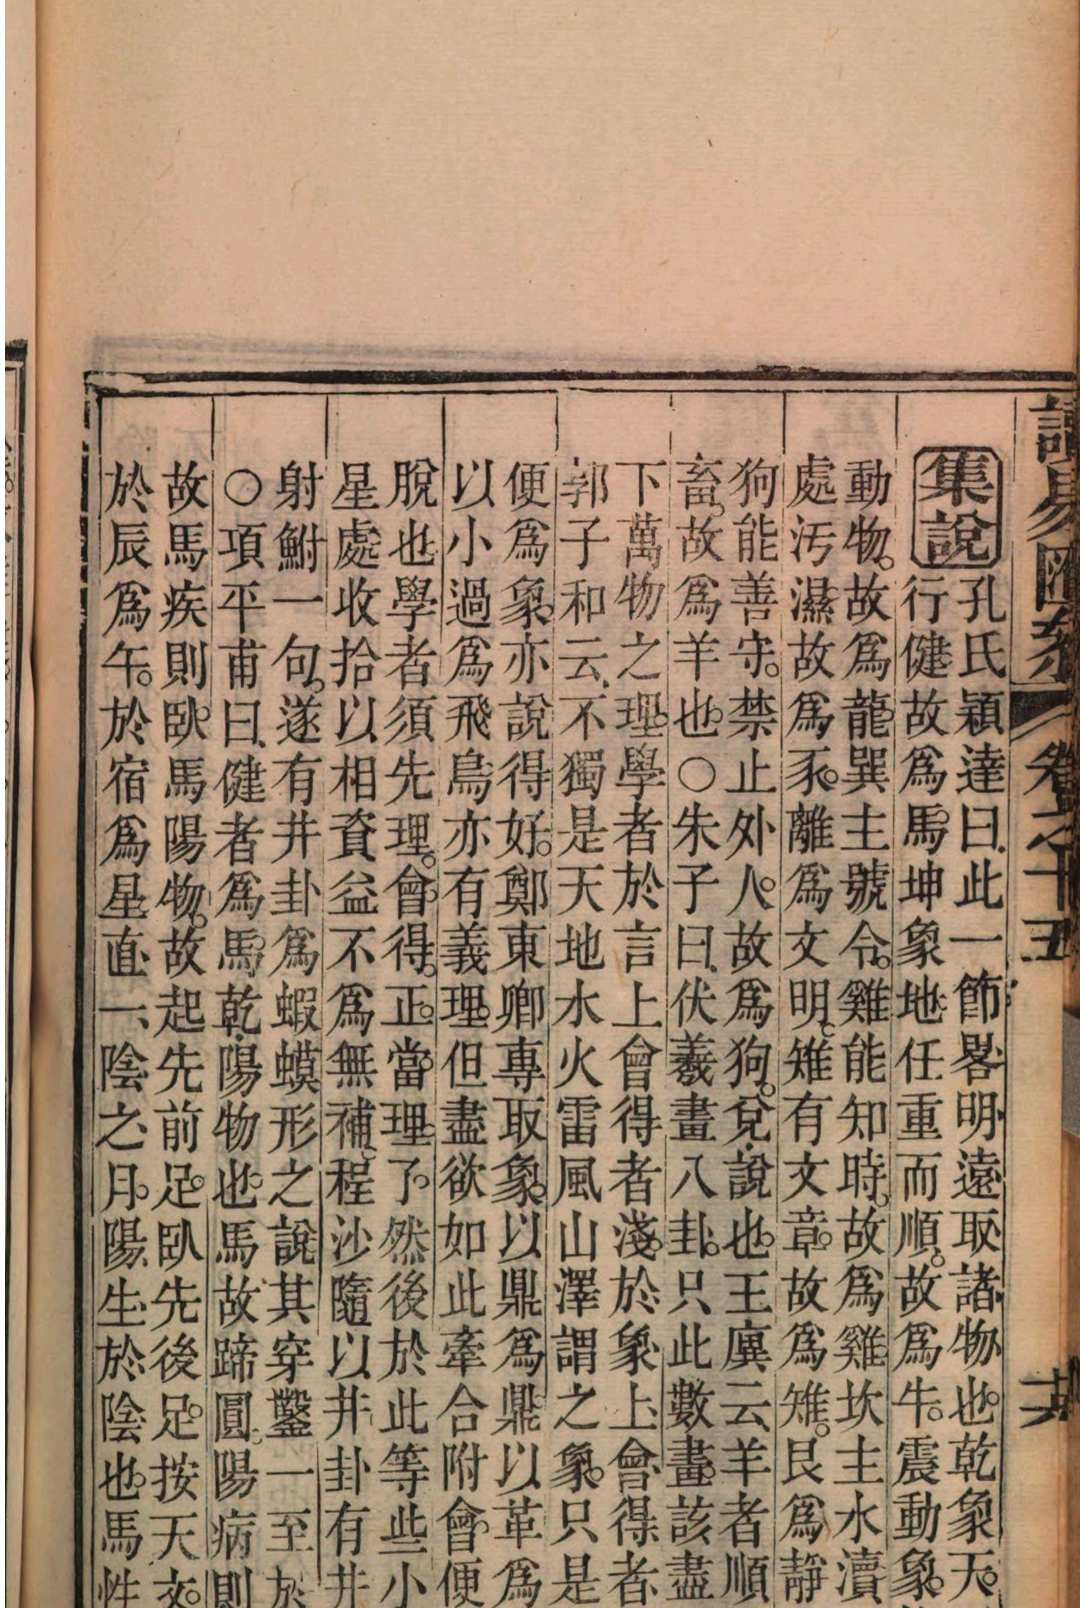 讀易匯參 卷之十五 十六
集說
孔氏穎達曰此一節畧明遠取諸物也乾象天
行健故爲馬坤象地任重而順故爲牛震動象
動物故爲龍巽主號令雞能知時故爲雞坎主水瀆
處汚濕故爲豕離爲文明雉有文章故爲雉艮爲靜
狗能善守禁止外人故爲狗兌說也王廙云羊者順
畜故爲羊也○朱子曰伏羲畫八卦只此數畫該盡
下萬物之理學者於言上會得者淺於象上會得者
郭子和云不獨是天地水火雷風山澤謂之象只是
便爲象亦說得好鄭東卿專取象以鼎爲鼎以革爲
以小過爲飛鳥亦有義理但盡欲如此牽合附會便
脫也學者須先理會得正當理了然後於此等些小
星處收拾以相資益不爲無補程沙隨以井卦有井
射鮒一句遂有井卦爲蝦蟆形之說其穿鑿一至於
○項平甫曰健者爲馬乾陽物也馬故蹄圓陽病則
故馬疾則臥馬陽物故起先前足臥先後足按天文
於辰爲午於宿爲星直一陰之月陽生於陰也馬性